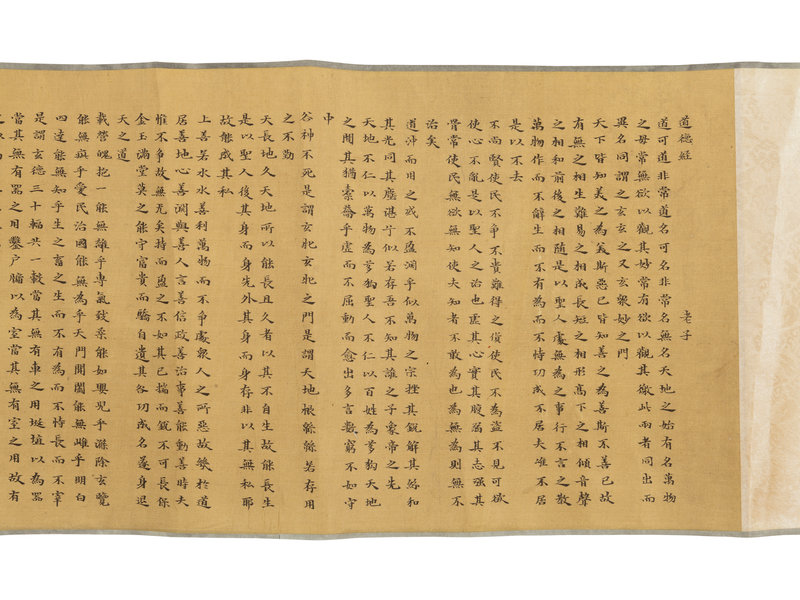 道德經 老子
道可道非常道名可名非常名無名天地之始有名萬物
之母常無欲以觀其妙常有欲以觀其徼此兩者同出而
異名同謂之玄玄之又玄衆妙之門
天下皆知美之為美斯惡已皆知善之為善斯不善已故
有無之相生難易之相成長短之相形高下之相傾音聲
之相和前後之相隨是以聖人處無為之事行不言之教
萬物作而不辭生而不有為而不恃功成不居夫唯不居
是以不去
不尚賢使民不爭不貴難得之貨使民不為盜不見可欲
使心不亂是以聖人之治也虛其心實其腹弱其志强其
骨常使民無欲無知使夫知者不敢為也為無為則無不
治矣
道沖而用之或不盈淵乎似萬物之宗挫其銳解其紛和
其光同其塵湛兮似若存吾不知其誰之子象帝之先
天地不仁以萬物為芻狗聖人不仁以百姓為芻狗天地
之間其猶橐籥乎虛而不屈動而愈出多言數窮不如守
中
谷神不死是謂玄牝玄牝之門是謂天地根綿綿若存用
之不勤
天長地久天地所以能長且久者以其不自生故能長生
是以聖人後其身而身先外其身而身存非以其無私耶
故能成其私
上善若水水善利萬物而不爭處衆人之所惡故幾於道
居善地心善淵與善人言善信政善治事善能動善時夫
惟不爭故無尤矣持而盈之不如其已揣而銳不可長保
金玉滿堂莫之能守富貴而驕自遺其咎功成名遂身退
天之道
載營魄抱一能無離乎專氣致柔能如嬰兒乎滌除玄覽
能無疵乎愛民治國能無為乎天門開闔能無雌乎明白
四達能無知乎生之畜之生而不有為而不恃長而不宰
是謂玄德三十輻共一轂當其無有車之用埏埴以為器
當其無有器之用鑿户牖以為室當其無有室之用故有